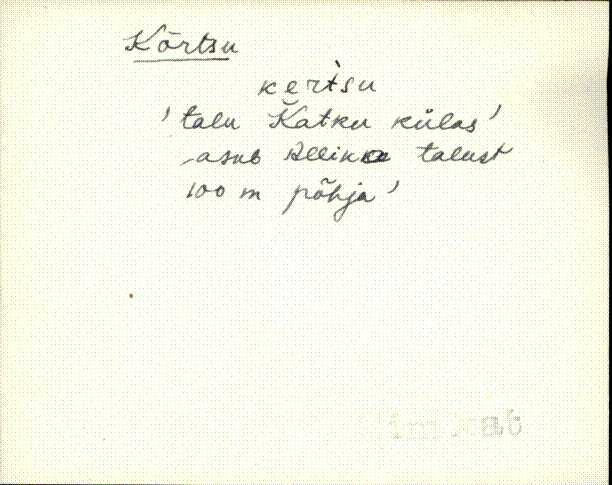 Kõrtsu
kertsu
'talu Katku külas'
asub Allika talust
100 m põhja'